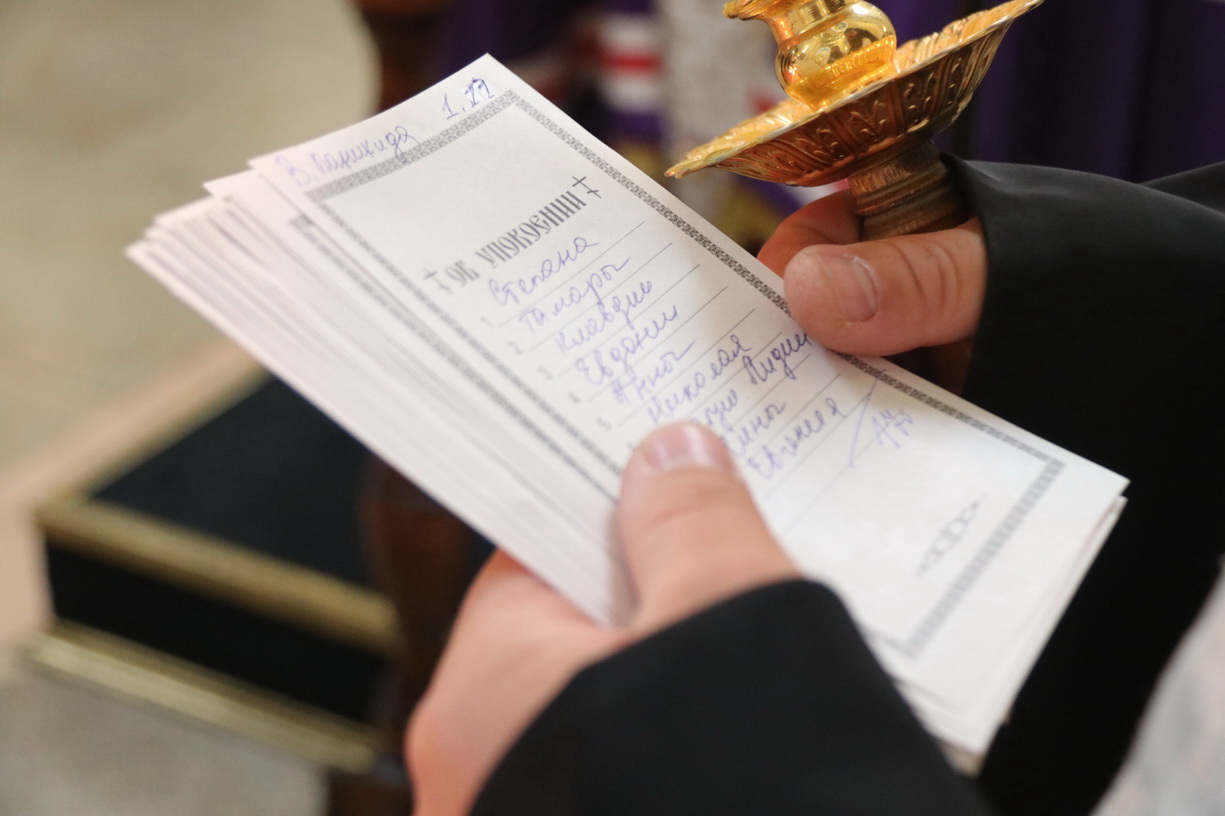 В. Панихида 1.
ОБ УПОКОЕНИИ
Степана
1
Тамары
2
Клавдии
3
Евдокии
4
Анны
5
Николая
Лидии
Евгения